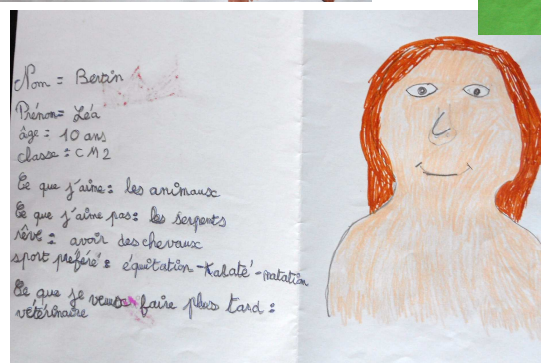 Nom = Bertin
Prénom = Léa
âge = 10 ans
classe : CM2
Ce que j'aime : les animaux
Ce que j'aime pas : les serpents
rêve : avoir des chevaux
sport préféré : équitation - Karaté - natation
Ce que je veux faire plus tard :
vétérinaire